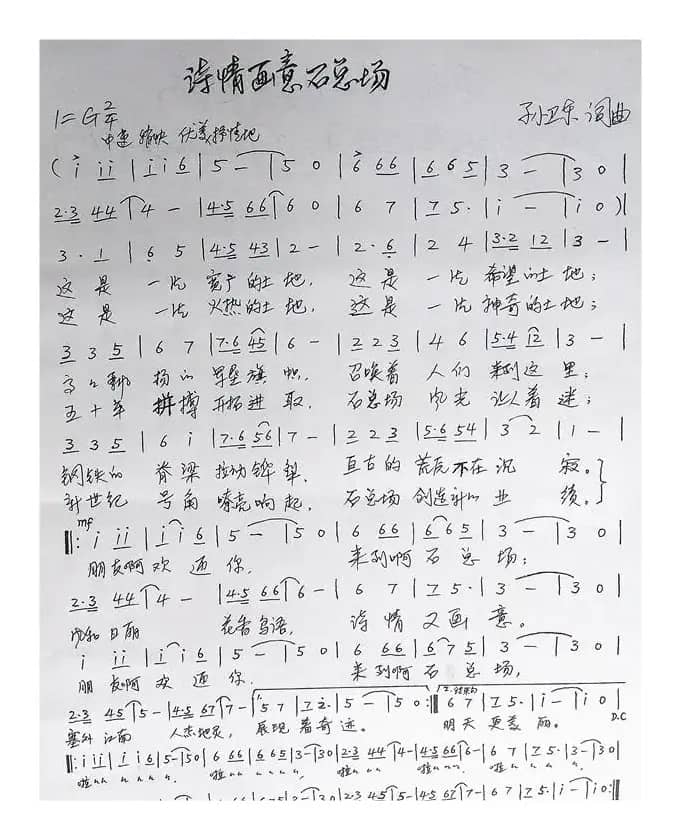 诗情画意石总场
1=G 2/4
中速 稍快 优美抒情地
孙卫东 词曲
( i ii | ii6 | 5 — | 5 0 | 6 66 | 6 6 5 | 3 — | 3 0 |
2·3 44 | 4 — | 4·5 66 | 6 0 | 6 7 | 7 5· | i — | i 0 )|
3 · 1 | 6 5 | 4·5 43 | 2 — | 2 · 6 | 2 4 | 3·2 12 | 3 — |
这是 一片 宽广的土地, 这是 一片 希望的土地;
这是 一片 火热的土地, 这是 一片 神奇的土地;
3 3 5 | 6 7 | 7·6 45 | 6 — | 2 2 3 | 4 6 | 5·4 12 | 3 — |
高高飘 扬的 军垦旗 帜, 召唤着 人们 来到这 里;
五十年 拼搏 开拓进 取, 石总场 风光 让人着 迷;
3 3 5 | 6 i | 7·6 56 | 7 — | 2 2 3 | 5·6 54 | 3 2 | 1 — |
钢铁的 脊梁 拉动铧犁, 亘古的 荒原不在沉 寂。
新世纪 号角 嘹亮响起, 石总场 创造新的业 绩。
mf
‖: i ii | i i 6 | 5 — | 5 0 | 6 66 | 6 6 5 | 3 — | 3 0 |
朋友啊 欢 迎 你, 来到啊 石 总 场;
2·3 44 | 4 — | 4·5 66 | 6 — | 6 7 | 7 5· | 3 — | 3 0 |
风和日丽 花香鸟语, 诗情 又画 意。
i ii | i i 6 | 5 — | 5 0 | 6 66 | 6 7 5 | 3 — | 3 0 |
朋友啊 欢 迎 你, 来到啊 石 总 场,
1.
2.结束句
2·3 45 | 5 — | 4·5 67 | 7 — | 5 7 | 7 2· | 5 — | 5 0 :‖ 6 7 | 7 5· | i — | i 0 |
塞外江南 人杰地灵, 展现着奇迹。 明天更美丽。
D.C
‖: i ii | i i 6 | 5 — | 5 0 | 6 66 | 6 6 5 | 3 — | 3 0 | 2·3 44 | 4 — | 4·5 66 | 6 — | 6 7 | 7 5· | 3 — | 3 0 |
啦 啦 啦 啦 啦
2·3 45 | 5 — | 4·5 67 | 7 — | 6 7 | 7 5· | i — | i 0 :‖